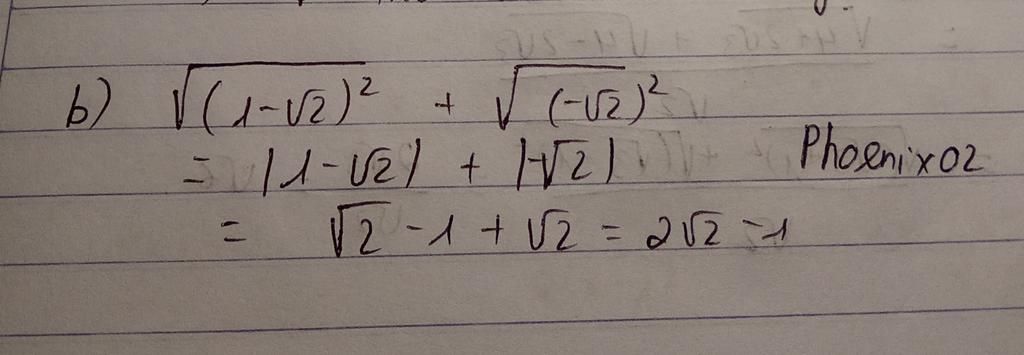 b) √(1-√2)² + √(-√2)²
= |1-√2| + |-√2| Phoenix02
= √2 -1 + √2 = 2√2 -1